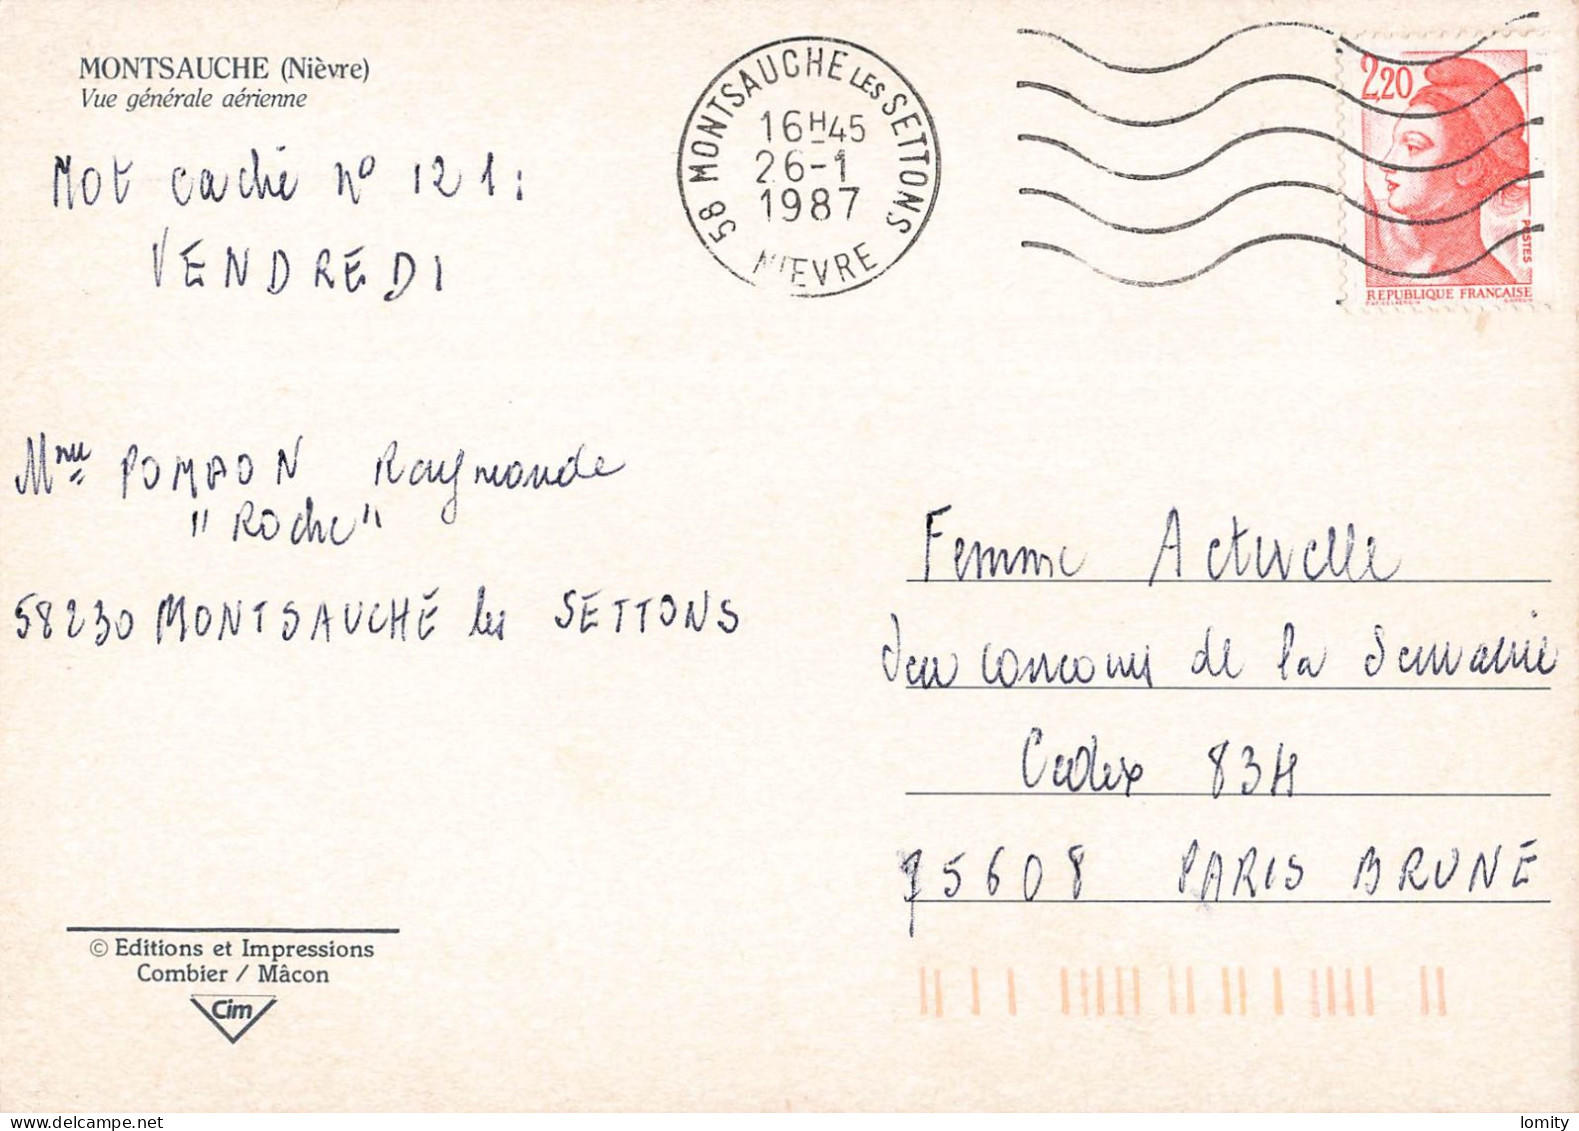 MONTSAUCHE (Nièvre)
Vue générale aérienne
Mot caché n° 121:
VENDREDI
58 MONTSAUCHE LES SETTONS
16H45
26-1
1987
NIEVRE
2,20
POSTES
REPUBLIQUE FRANÇAISE
Mme Raymonde
"Roche"
58230 MONTSAUCHE les SETTONS
Femme Actuelle
Jeu concours de la Semaine
Cedex 83H
75608 PARIS BRUNE
© Editions et Impressions
Combier / Mâcon
Cim
lomity